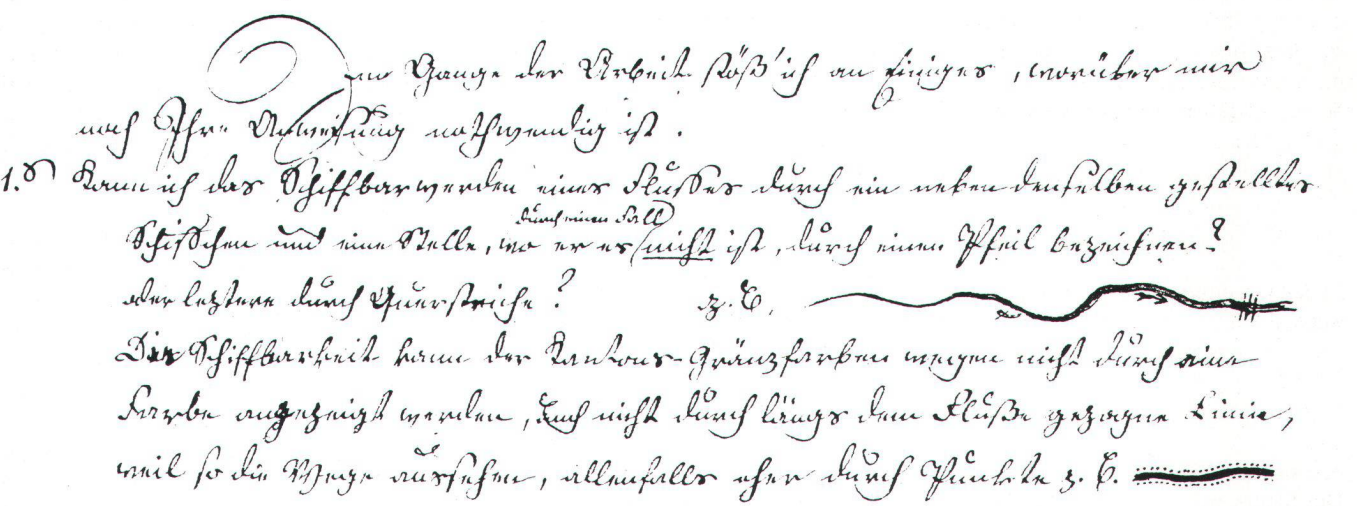 Im Gange der Arbeit stöß' ich an Einiges, worüber mir
noch Ihre Anweisung nothwendig ist.
1.) Kann ich das Schiffbarwerden eines Flusses durch ein neben denselben gestelltes
durch einen Fall
Schiffchen und eine Stelle, wo er es nicht ist, durch einen Pfeil bezeichnen?
oder letztere durch Querstriche? z. B.
Die Schiffbarkeit kann der Kantons-Gränzfarben wegen nicht durch eine
Farbe angezeigt werden, auch nicht durch längs dem Fluße gezogne Linie,
weil so die Wege aussehen, allenfalls eher durch Punkte z. B.